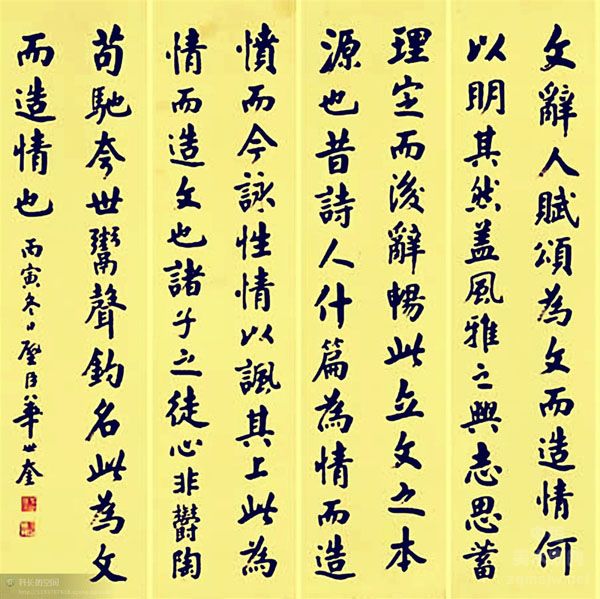 文辭人賦頌為文而造情何
以明其然盖風雅之興志思蓄
理定而後辭暢此立文之本
源也昔詩人什篇為情而造
憤而今詠性情以諷其上此為
情而造文也諸子之徒心非鬱陶
苟馳夸世鬻聲釣名此為文
而造情也
丙寅冬日璧臣華世奎
科长的空间